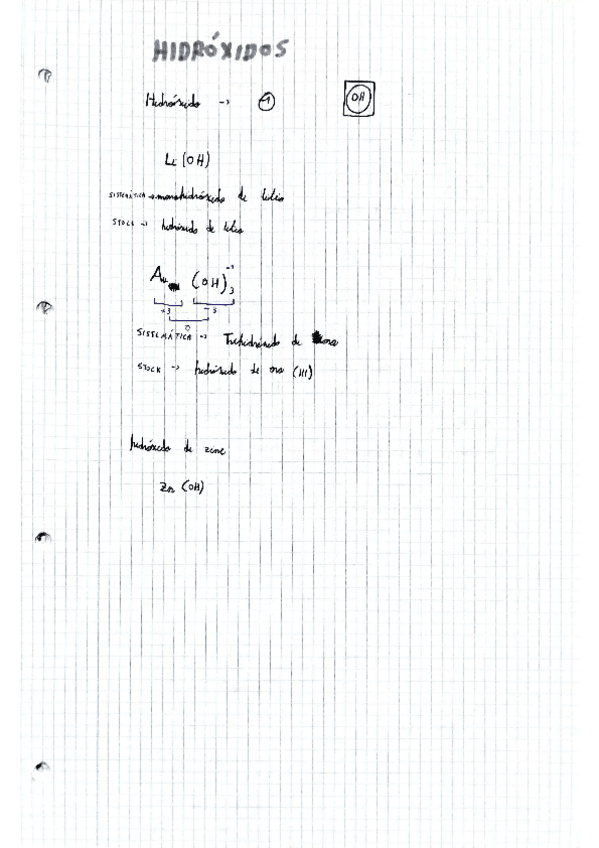 HIDRÓXIDOS
Hidróxido → -1 OH
Li(OH)
SISTEMÁTICA → monohidróxido de litio
STOCK → hidróxido de litio
Au (OH)₃⁻¹
+3 -3
0
SISTEMÁTICA → Trihidróxido de oro
STOCK → hidróxido de oro (III)
hidróxido de zinc
Zn (OH)